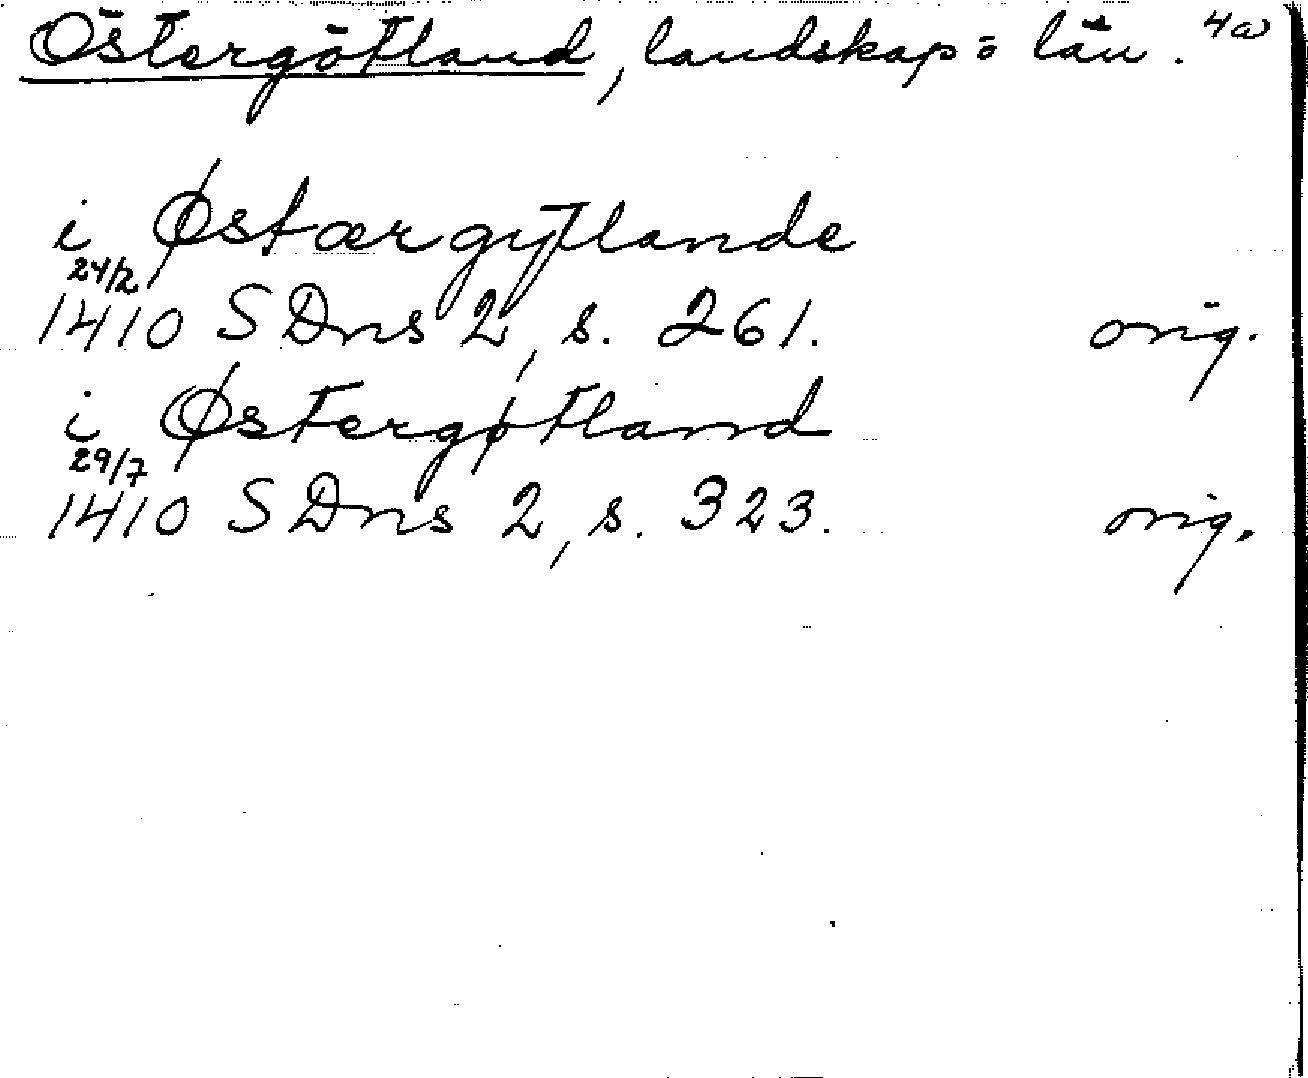 Östergötland, landskap o län. 4a
i Østærgytlande
24/2
1410 SDns 2, s. 261. orig.
i Østergøtland
29/7
1410 SDns 2, s. 323. orig.